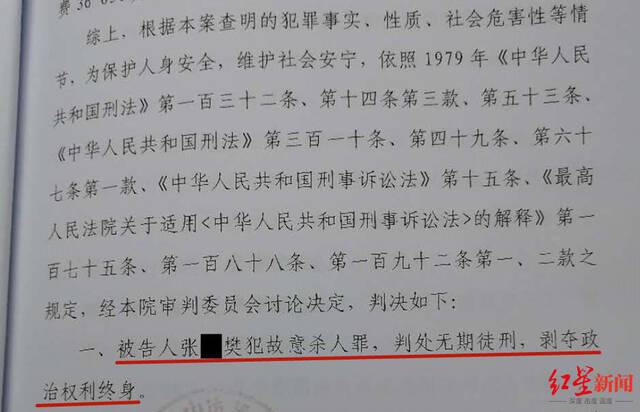 综上，根据本案查明的犯罪事实、性质、社会危害性等情
节，为保护人身安全，维护社会安宁，依照 1979 年《中华人民
共和国刑法》第一百三十二条、第十四条第三款、第五十三条、
《中华人民共和国刑法》第三百一十条、第四十九条、第六十
七条第一款、《中华人民共和国刑事诉讼法》第十五条、《最高
人民法院关于适用<中华人民共和国刑事诉讼法>的解释》第一
百七十五条、第一百八十八条、第一百九十二条第一、二款之
规定，经本院审判委员会讨论决定，判决如下：
一、被告人张 樊犯故意杀人罪，判处无期徒刑，剥夺政
治权利终身。
红星新闻
深度 态度 温度